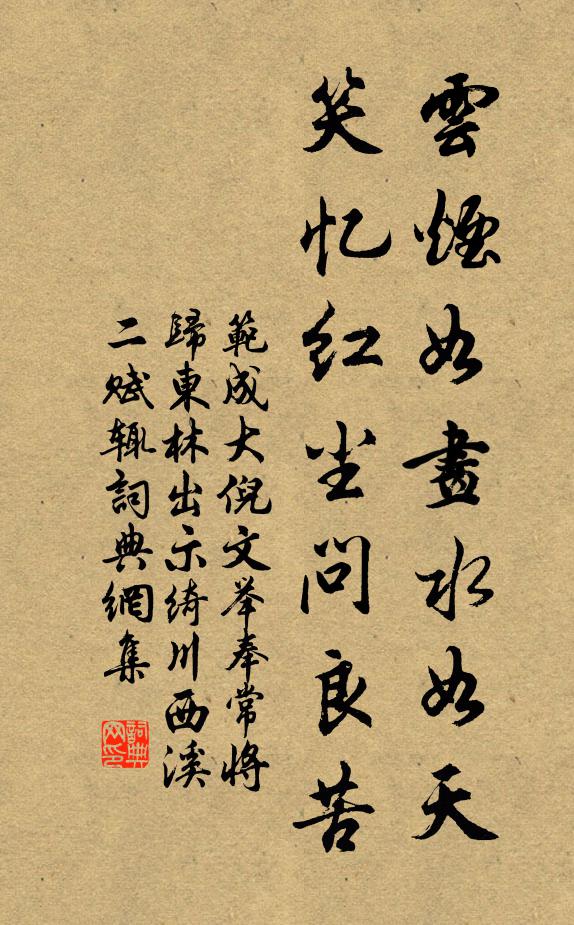 雲煙如畫水如天
笑忆红尘问良苦
範成大倪文举奉常將
歸東林出示绮川西溪
二赋辄詞典網集
詞典网印